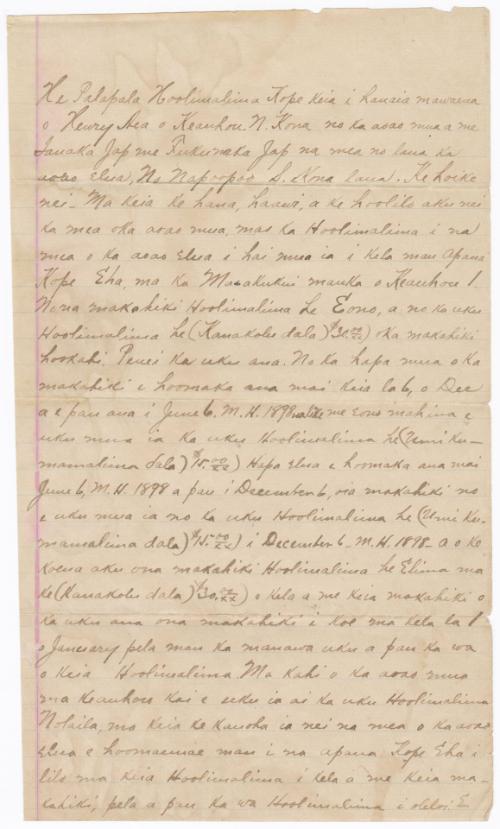 He Palapala Hoolimalima Kope keia i hanaia mawaena
o Henry Hea o Keauhou N. Kona no ka aoao mua a me
Tanaka Jap me Fukunaka Jap na mea no laua ka
aoao elua, No Napoopoo S. Kona laua. Ke hoike
nei - Ma keia ke hana, haawi, a ke hoolilo aku nei
ka mea oka aoao mua, mas ka Hoolimalima i na
mea o ka aoao Elua i hai mua ia i kela mau Apana
Kope Eha, ma ka Masakukui mauka o Keauhou 1.
No na makahiki Hoolimalima he Eono, a no ka uku
Hoolimalima he (Kanakolu dala) $30.00/xx oka makahiki
hookahi. Penei ka uku ana. No ka hapa mua o ka
makahiki e hoomaka ana mai keia la 6, o Dec
a e pau ana i June 6. M.H. 1898 me Eono mahina e
uku mua ia ka uku Hoolimalima he (Umi ku-
mamalima dala) $15.00/xx) Hapa Elua e hoomaka ana mai
June 6, M.H. 1898 a pau i December 6, oia makahiki no
e uku mua ia no ka uku Hoolimalima he (Umi Ku-
mamalima dala) $15.00/xx) i December 6 - M.H. 1898 - a o ke
koena aku ona makahiki Hoolimalima he Elima ma
ke (Kanakolu dala) $30.00/xx) o kela a me keia makahiki o
ka uku ana ona makahiki i koe ma kela la 1
o January pela mau ka manawa uku a pau ka wa
o keia Hoolimalima Ma kahi o ka aoao mua
ma Keauhou kai e uku ia ai ka uku Hoolimalima
Nolaila, ma keia ke kauoha ia nei na mea o ka aoao
Elua e hoomaemae mau i na apana Kope Eha i
lilo ma keia Hoolimalima i kela a me keia ma-
kahiki, pela a pau ka wa Hoolimalima i oleloi. E